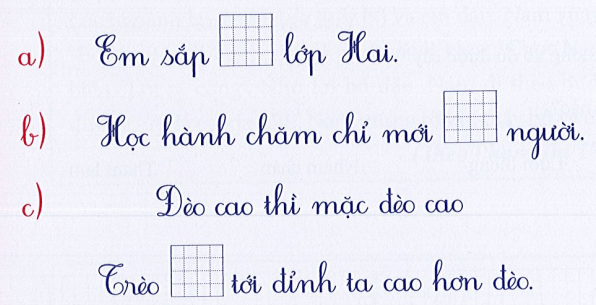 a) Em sắp lớp Hai.
b) Học hành chăm chỉ mới người.
c) Đèo cao thì mặc đèo cao
Trèo tới đỉnh ta cao hơn đèo.